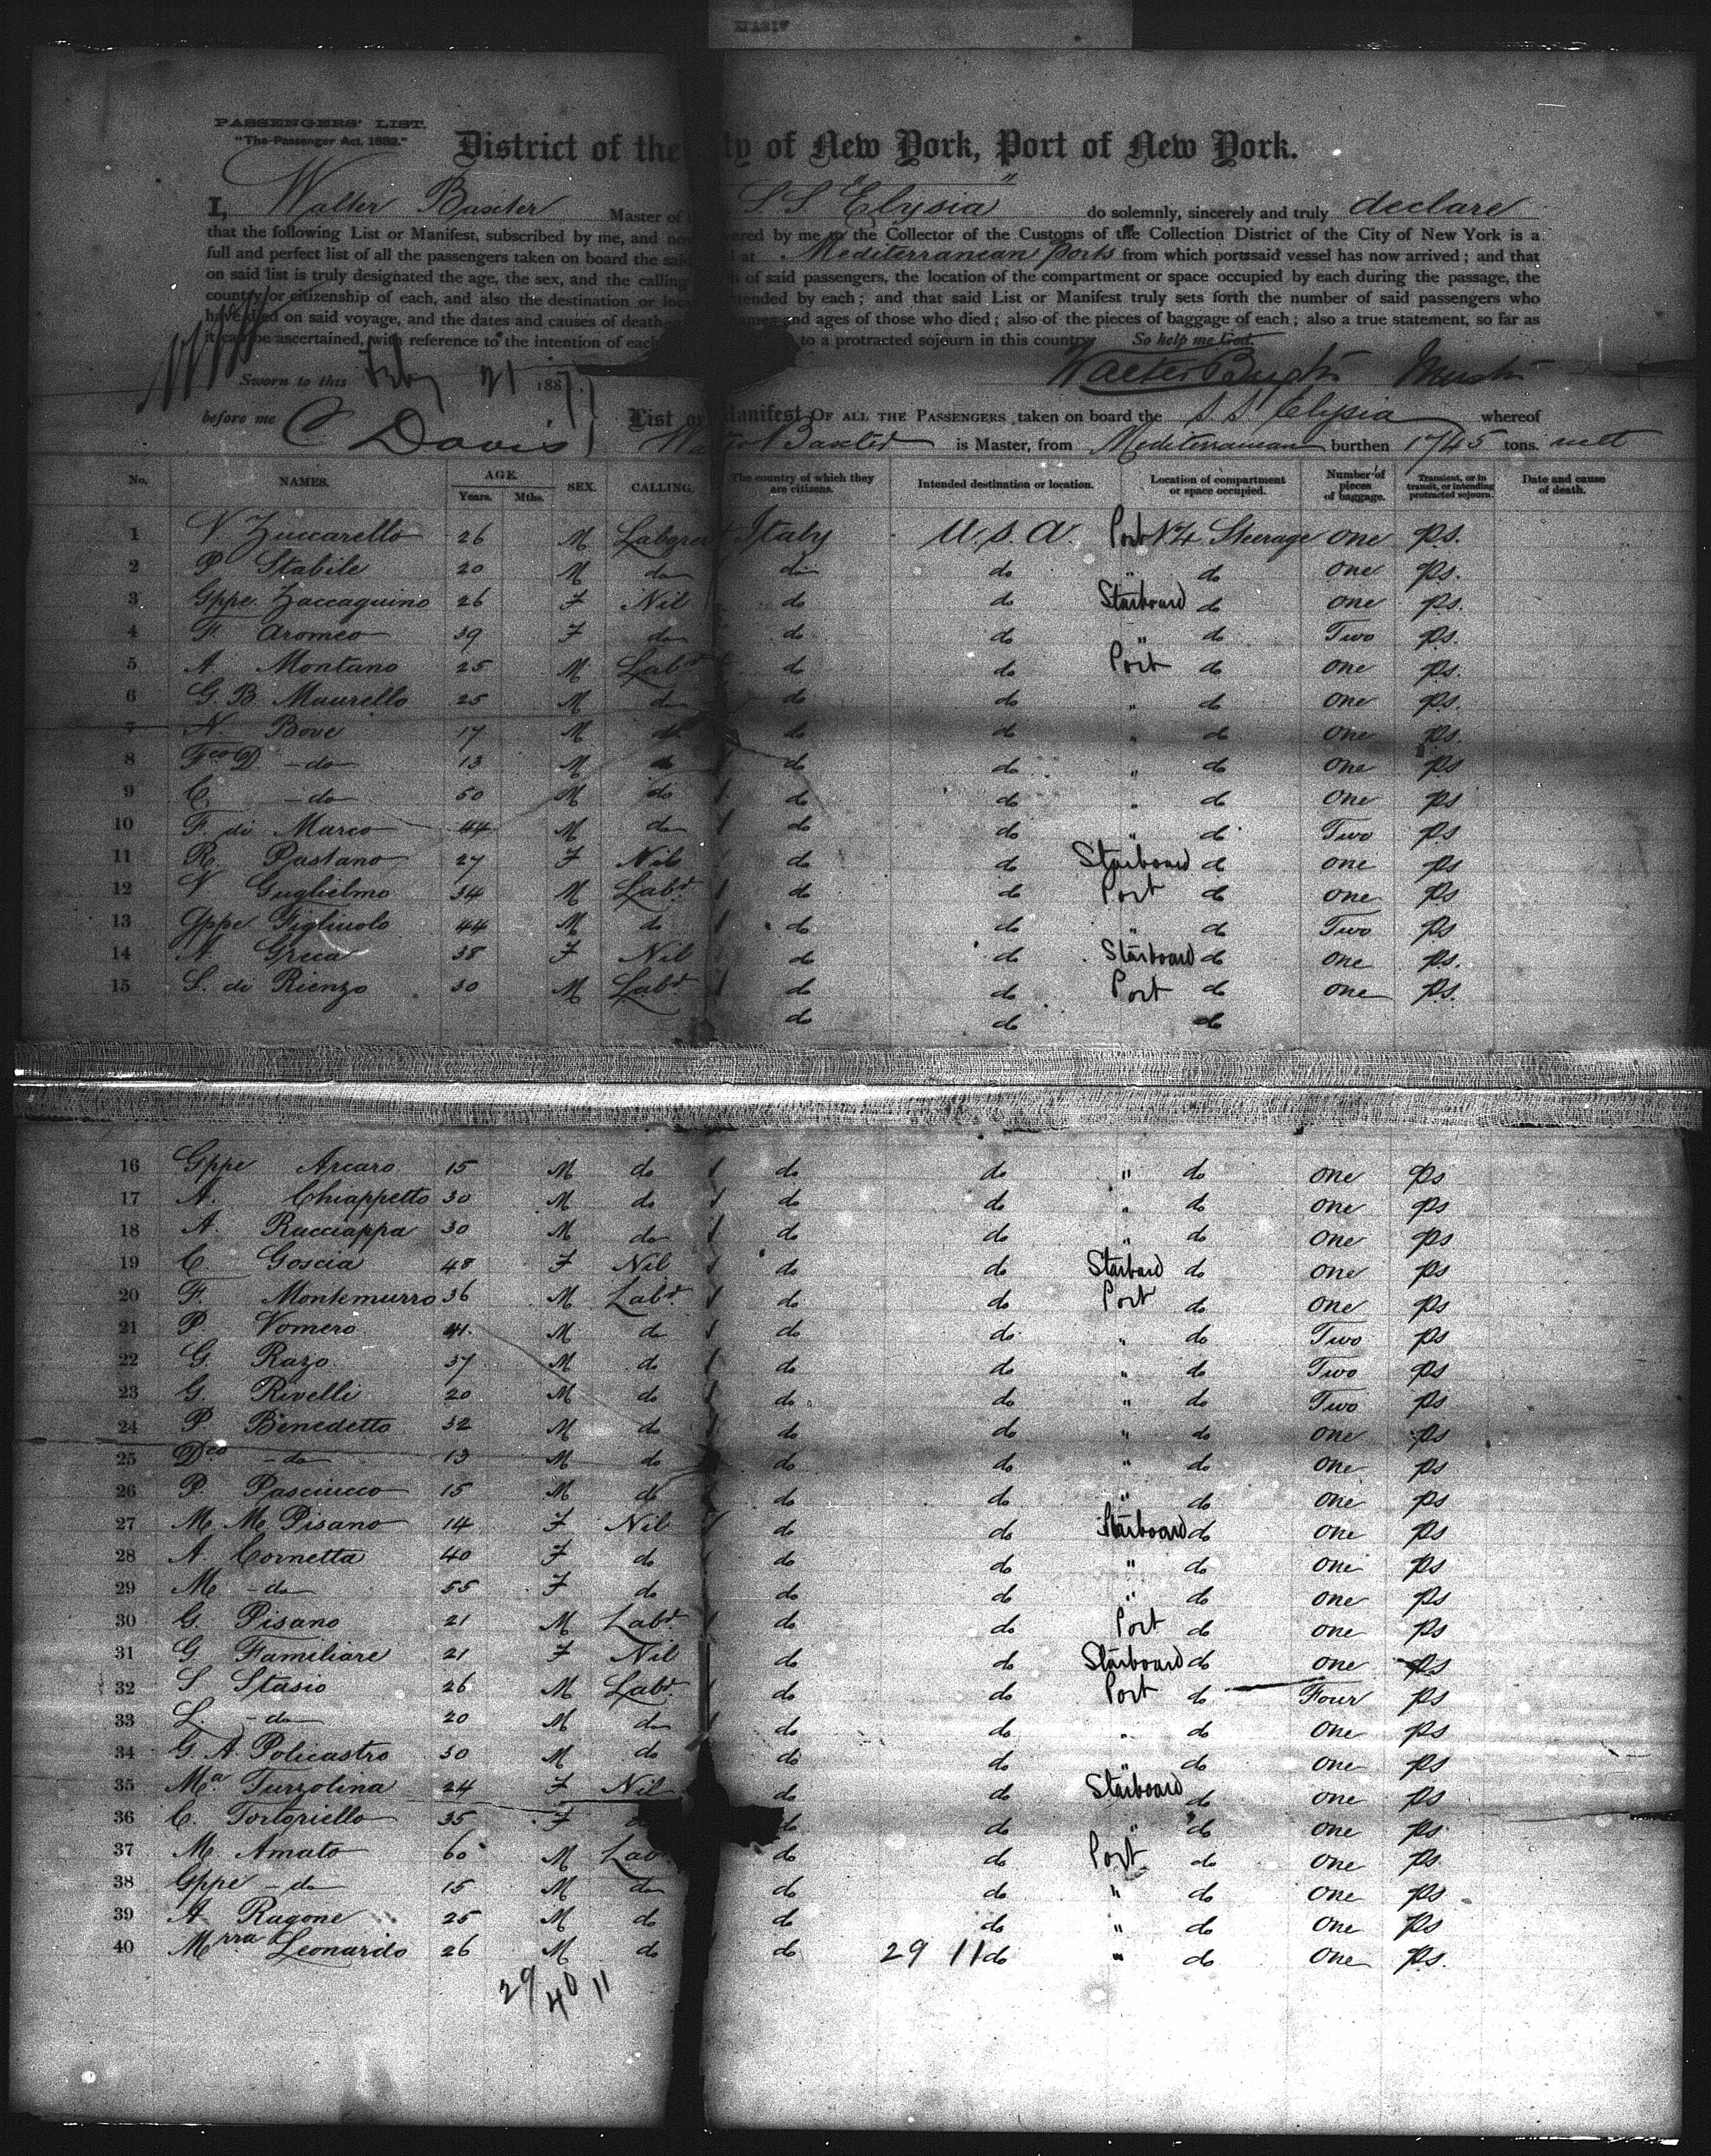 PASSENGERS' LIST.
"The Passenger Act, 1882."
District of the ty of New York, Port of New York.
I, Walter Baxter Master of S.S. "Elysia" do solemnly, sincerely and truly declare
that the following List or Manifest, subscribed by me, and now ered by me to the Collector of the Customs of the Collection District of the City of New York is a
full and perfect list of all the passengers taken on board the said at Mediterranean Ports from which port said vessel has now arrived; and that
on said list is truly designated the age, the sex, and the calling of said passengers, the location of the compartment or space occupied by each during the passage, the
country or citizenship of each, and also the destination or loca tended by each; and that said List or Manifest truly sets forth the number of said passengers who
have died on said voyage, and the dates and causes of death names and ages of those who died; also of the pieces of baggage of each; also a true statement, so far as
it can be ascertained, with reference to the intention of each to a protracted sojourn in this country. So help me God.
Sworn to this Feby 21 1887
before me C Davis List or Manifest OF ALL THE PASSENGERS taken on board the S.S. Elysia whereof
Walter Baxter is Master, from Mediterranean burthen 1745 tons. nett
No. NAMES. AGE. Years. Mths. SEX. CALLING. The country of which they are citizens. Intended destination or location. Location of compartment or space occupied. Number of pieces of baggage. Transient, or in transit, or intending protracted sojourn. Date and cause of death.
1 V Zuccarello 26 M Labourer Italy U.S.A. Port No 4 Steerage One ps.
2 P Stabile 20 M do do do " do One ps.
3 Gppe. Zaccaguino 26 F Nil do do Starboard do One ps.
4 F. Aromeo 39 F do do do " do Two ps.
5 A. Montano 25 M Labr do do Port do One ps.
6 G.B. Maurello 25 M do do do " do One ps.
7 N. Bove 17 M do do do " do One ps.
8 Fco D. -do- 13 M do do do " do One ps
9 C. -do- 50 M do do do " do One ps
10 F. di Marco 44 M do do do " do Two ps
11 R. Pastano 27 F Nil do do Starboard do One ps
12 V Guglielmo 34 M Labr do do Port do One ps
13 Gppe Gigliuolo 44 M do do do " do Two ps
14 N. Greca 38 F Nil do do Starboard do One ps.
15 L. di Rienzo 30 M Labr do do Port do One ps.
do do do
16 Gppe Arcaro 15 M do do do " do One ps
17 A. Chiappetto 30 M do do do " do One ps
18 A. Racciappa 30 M do do do " do One ps
19 C. Goscia 48 F Nil do do Starboard do One ps
20 F. Montemurro 36 M Labr do do Port do One ps
21 P Vomero 41 M do do do " do Two ps
22 G. Razo 37 M do do do " do Two ps
23 G. Rivelli 20 M do do do " do Two ps
24 P. Benedetto 32 M do do do " do One ps
25 Dco -do- 13 M do do do " do One ps
26 P. Pasciucco 15 M do do do " do One ps
27 M. M. Pisano 14 F Nil do do Starboard do One ps
28 A. Cornetta 40 F do do do " do One ps
29 M -do- 55 F do do do " do One ps
30 G. Pisano 21 M Labr do do Port do One ps
31 G. Familiare 21 F Nil do do Starboard do One ps
32 S Stasio 26 M Labr do do Port do Four ps
33 L. -do- 20 M do do do " do One ps
34 G.A. Policastro 30 M do do do " do One ps
35 Ma Turzolina 24 F Nil do do Starboard do One ps
36 C. Tortoriello 35 F do do " do One ps
37 M Amato 60 M Lab do do Port do One ps
38 Gppe -do- 15 M do do do " do One ps
39 A. Ragone 25 M do do do " do One ps
40 Mrra Leonardo 26 M do do 29 11 do " do One ps.
29 / 40 11